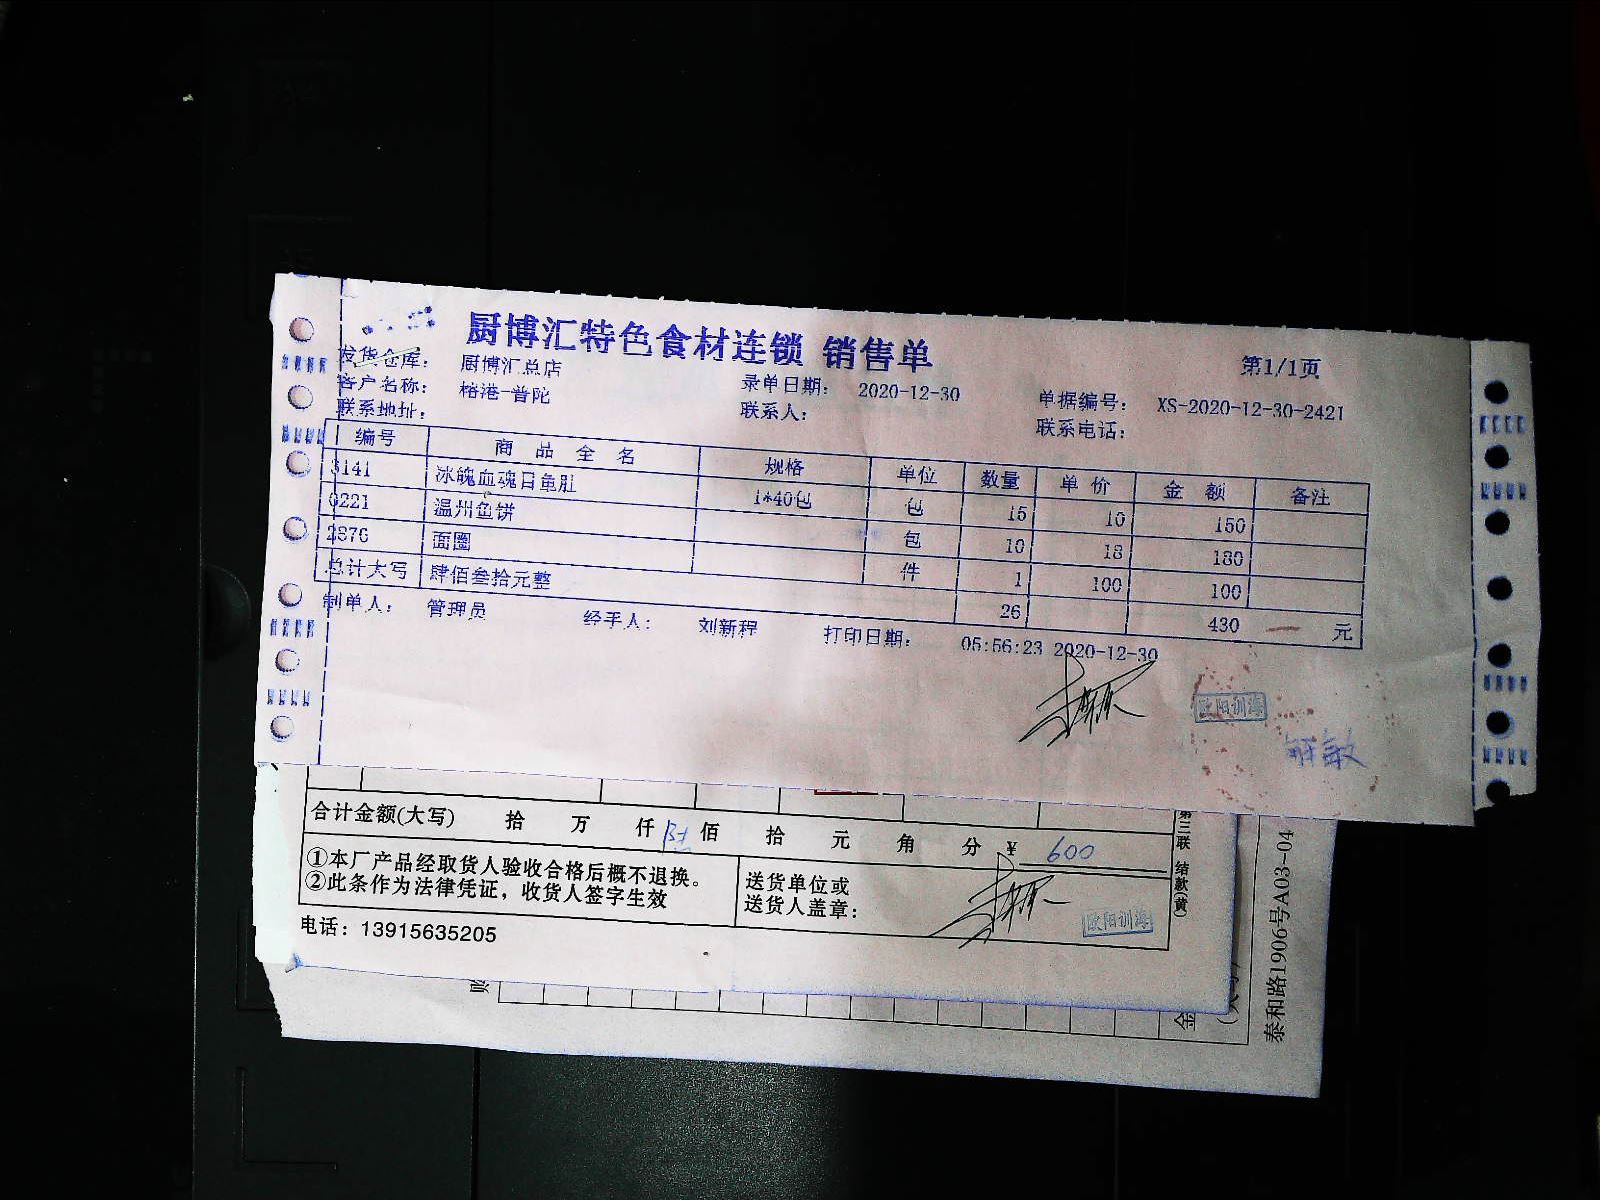 厨博汇特色食材连锁 销售单
第1/1页
发货仓库： 厨博汇总店
客户名称： 榕港-普陀 录单日期： 2020-12-30 单据编号： XS-2020-12-30-2421
联系地址： 联系人： 联系电话：
编号 商品全名 规格 单位 数量 单价 金额 备注
3141 冰魄血魂目鱼肚 1*40包 包 15 10 150
0221 温州鱼饼 包 10 18 180
2876 面圈 件 1 100 100
总计大写 肆佰叁拾元整 26 430 元
制单人： 管理员 经手人： 刘新程 打印日期： 05:56:23 2020-12-30
欧阳训海
合计金额(大写) 拾 万 仟 陆 佰 拾 元 角 分 ¥ 600
①本厂产品经取货人验收合格后概不退换。
②此条作为法律凭证，收货人签字生效
送货单位或
送货人盖章：
欧阳训海
电话：13915635205
第三联 结款(黄)
账
金
泰和路1906号A03-04